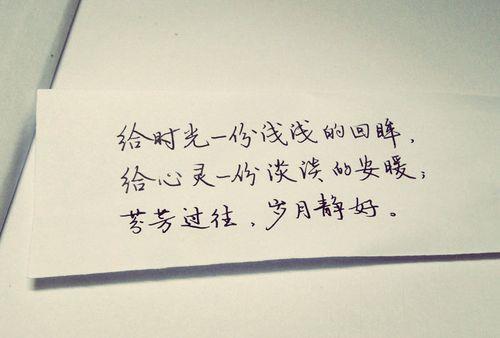 给时光一份浅浅的回眸，
给心灵一份淡淡的安暖；
芬芳过往、岁月静好。